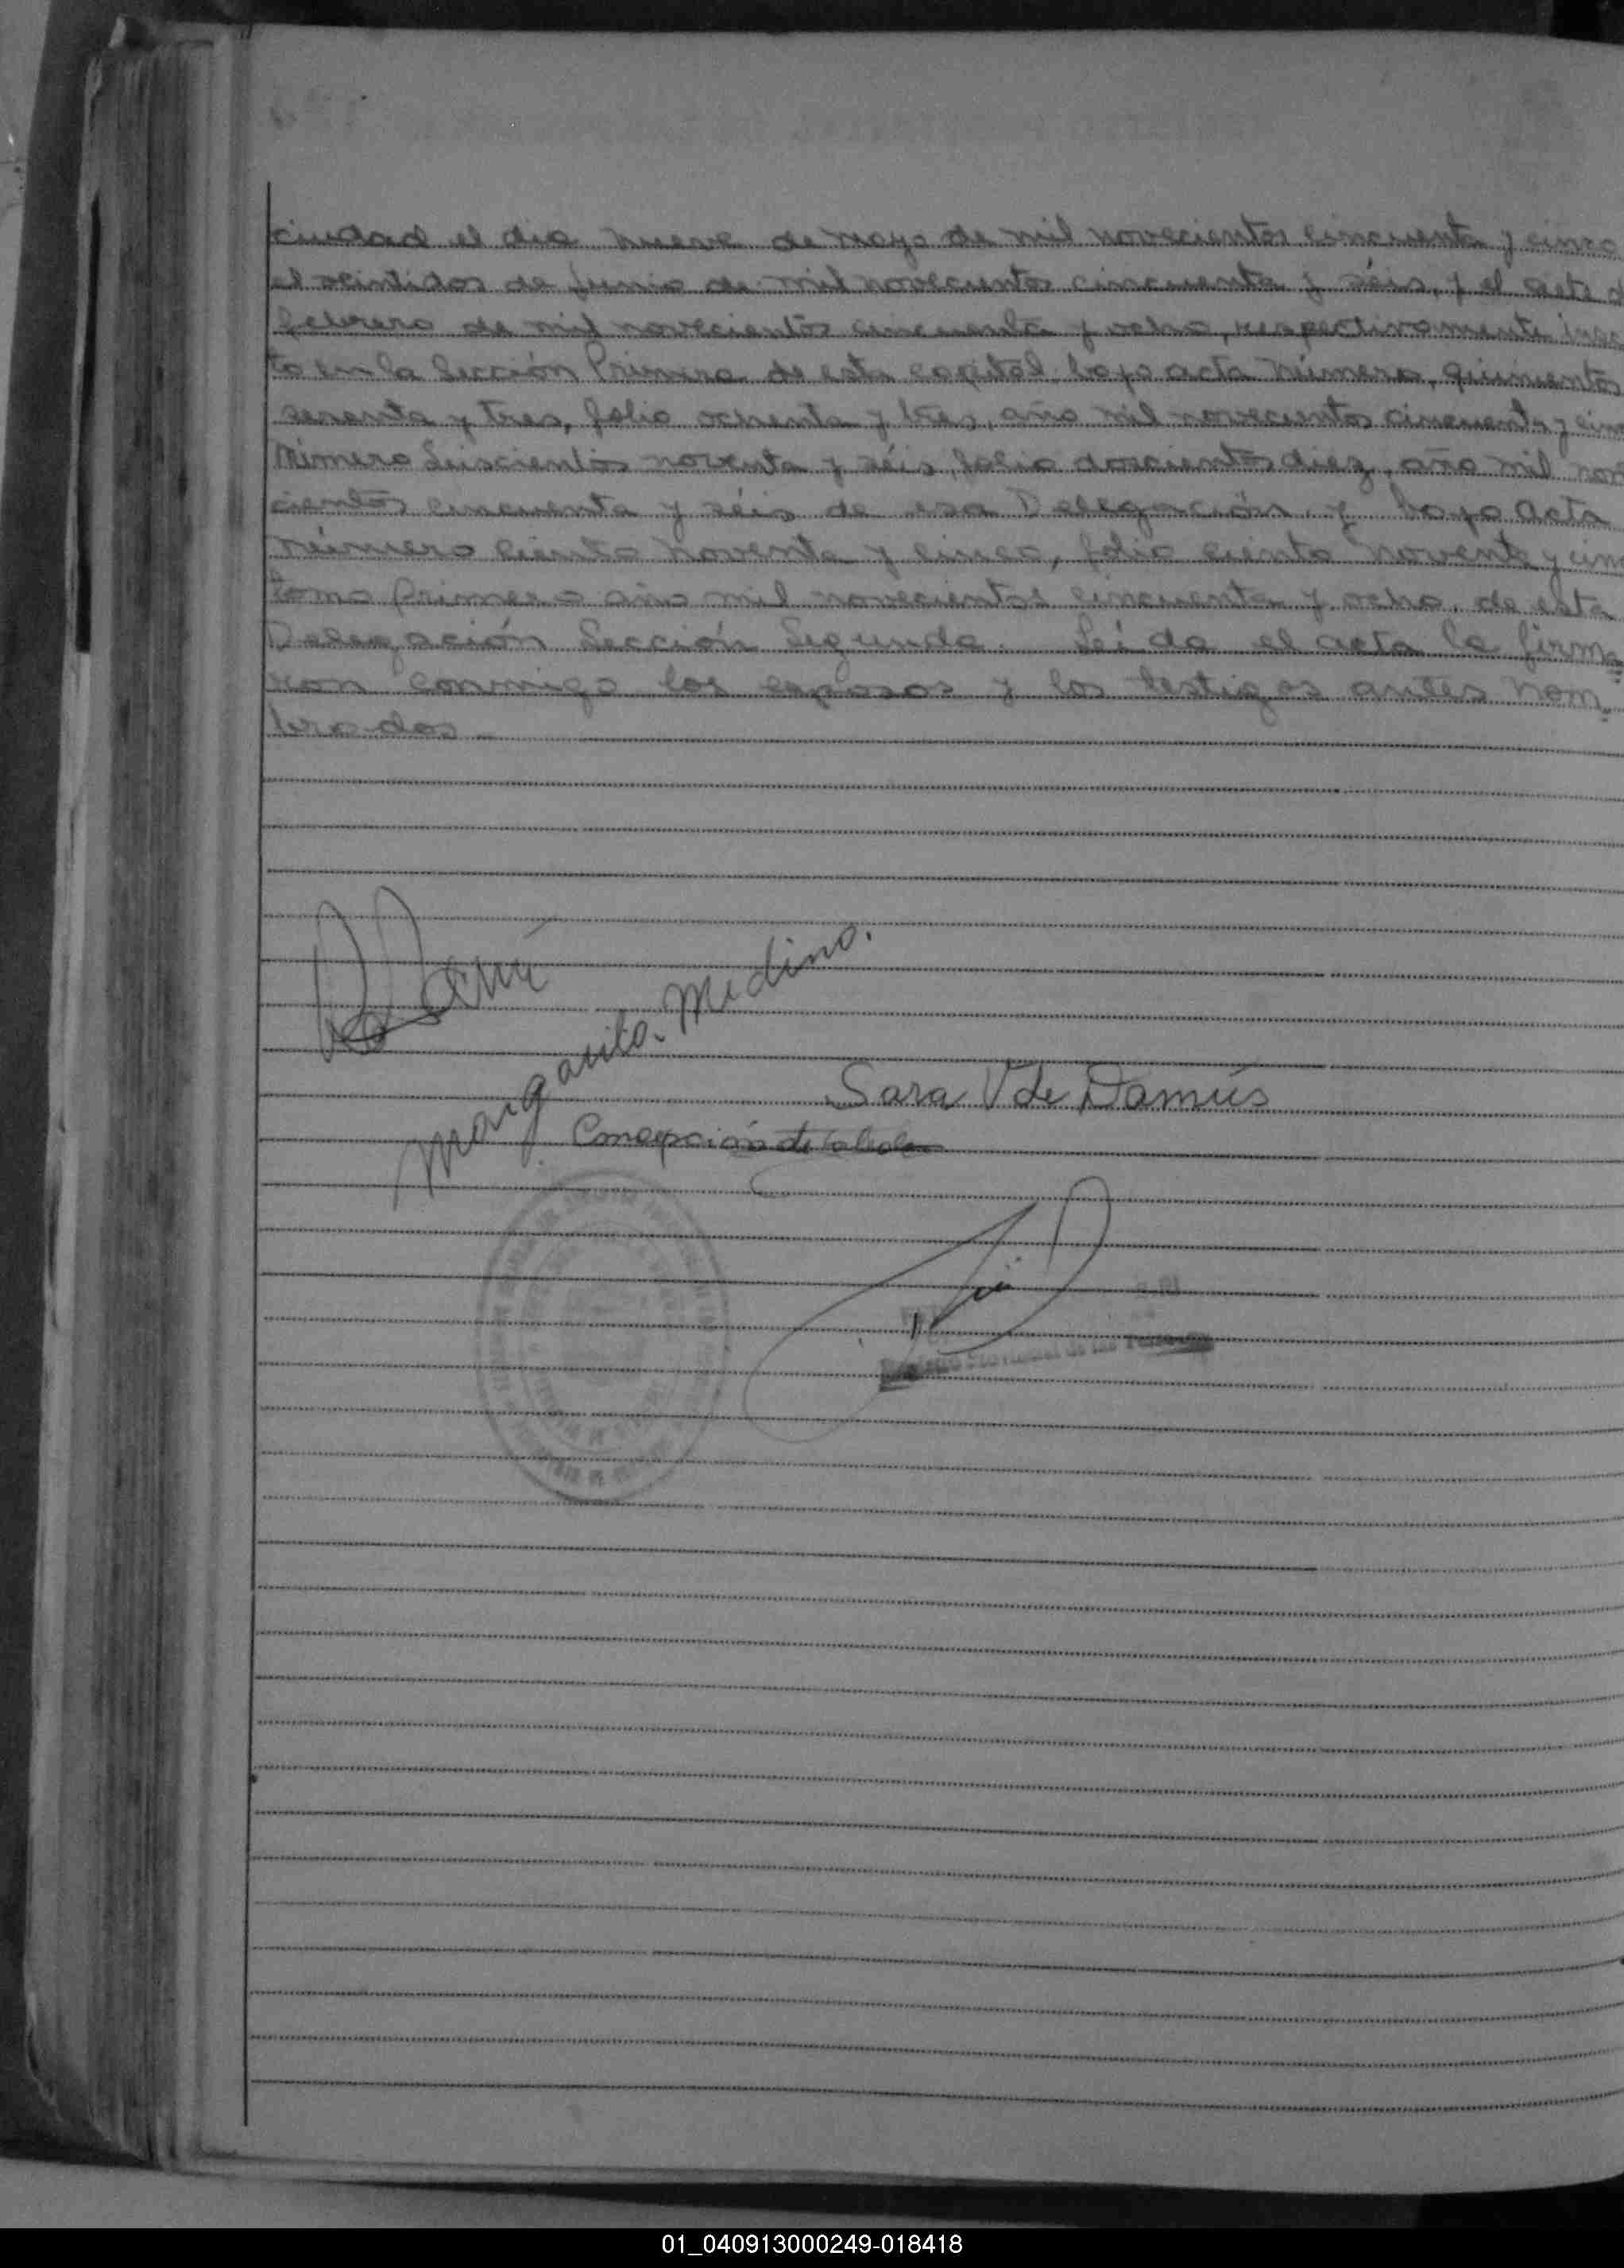 ciudad el dia nueve de mayo de mil novecientos cincuenta y cinco
el veintidos de junio de mil novecientos cincuenta y séis, y el siete d
febrero de mil novecientos cincuenta y ocho, respectivamente insc
to en la Sección Primera de esta capital bajo acta Número, quinientos
sesenta y tres, folio ochenta y tres, año mil novecientos cincuenta y cin
Número Seiscientos noventa y séis, folio doscientos diez, año mil nov
cientos cincuenta y séis de esa Delegación, y bajo acta
Número ciento noventa y cinco, folio ciento noventa y cin
tomo Primero año mil novecientos cincuenta y ocho, de esta
Delegación Sección Segunda. Leída el acta la firma
ron conmigo los esposos y los testigos antes nom
brados
Margarita Medina.
Sara V de Damús
Concepción de
de las
01_040913000249-018418